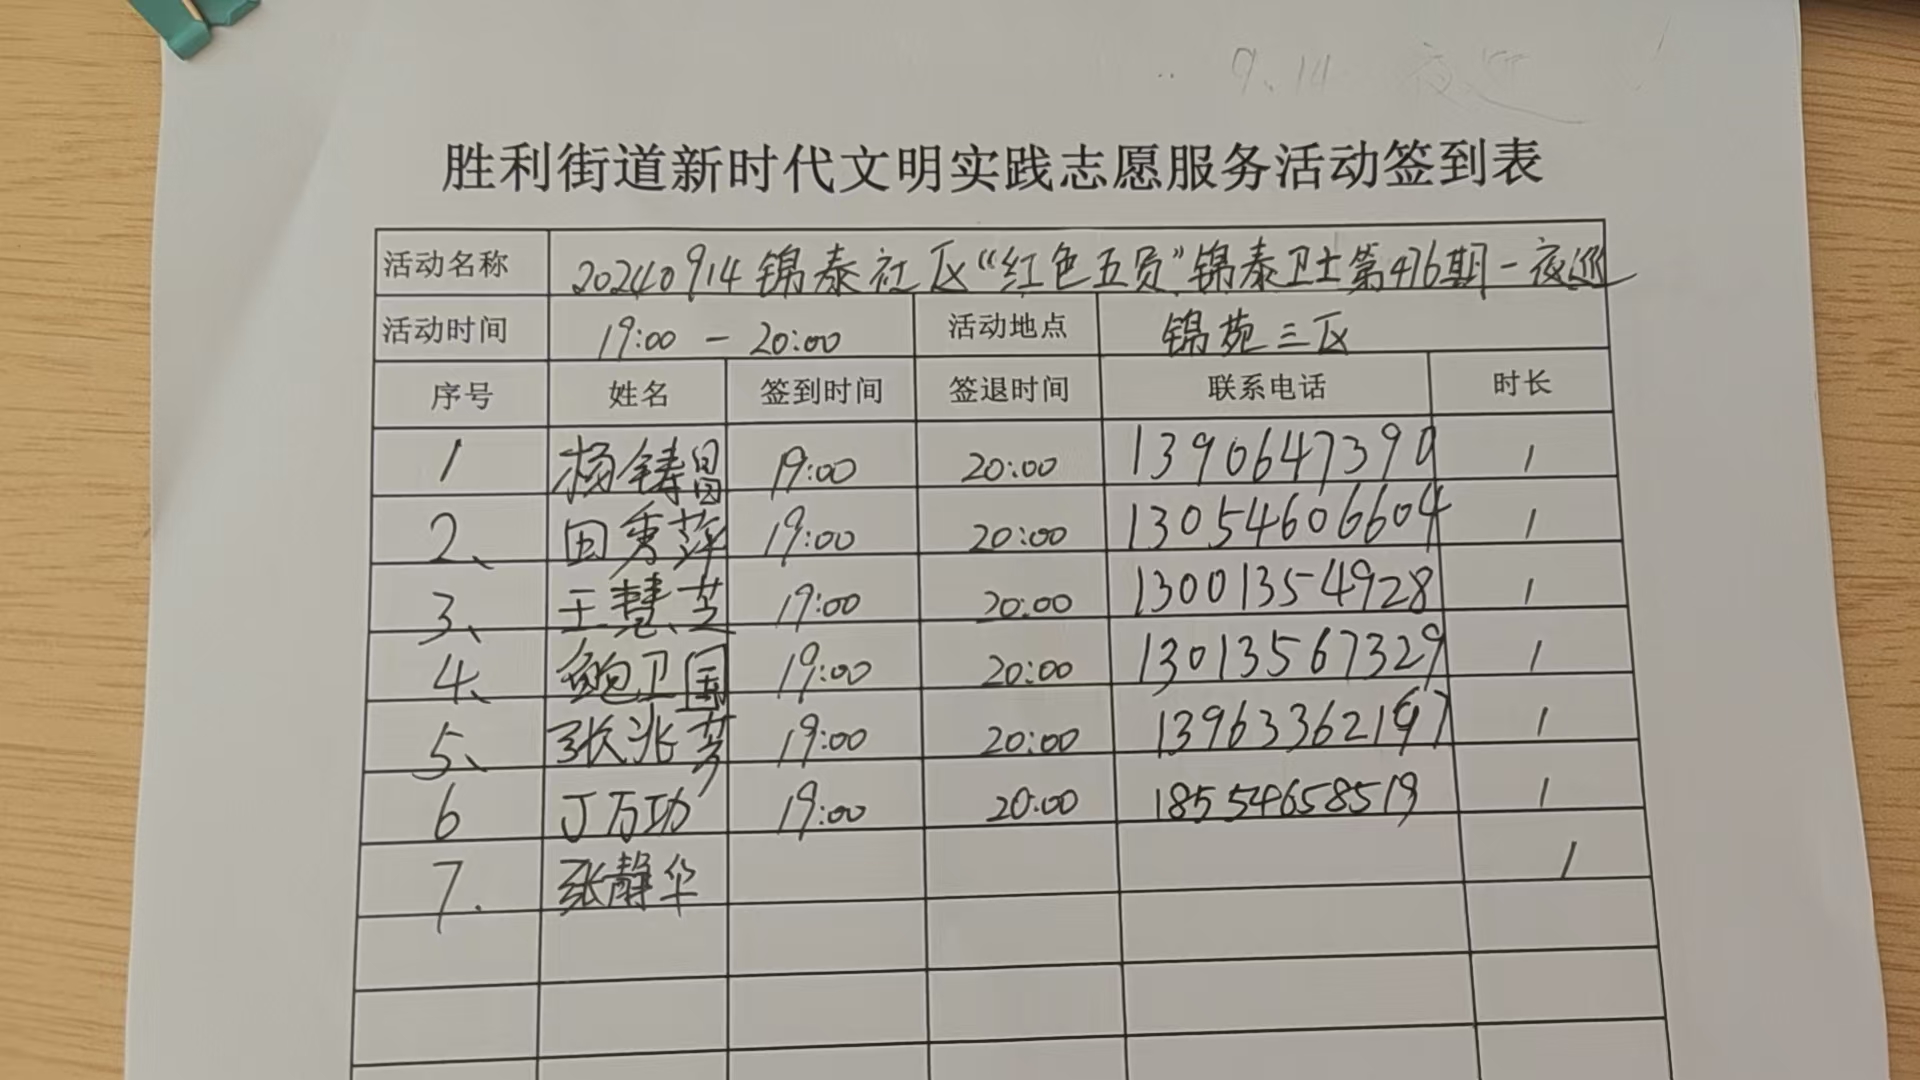 9.14 夜巡
胜利街道新时代文明实践志愿服务活动签到表
活动名称 20240914锦泰社区“红色五员”锦泰卫士第476期-夜巡
活动时间 19:00 - 20:00 活动地点 锦苑三区
序号 姓名 签到时间 签退时间 联系电话 时长
1 杨铸昌 19:00 20:00 1390647390 1
2、 田秀萍 19:00 20:00 13054606604 1
3、 王慧芝 19:00 20:00 13001354928 1
4、 鲍卫国 19:00 20:00 13013567329 1
5、 张兆芳 19:00 20:00 13963362197 1
6 丁万功 19:00 20:00 18554658519 1
7. 张静华 1